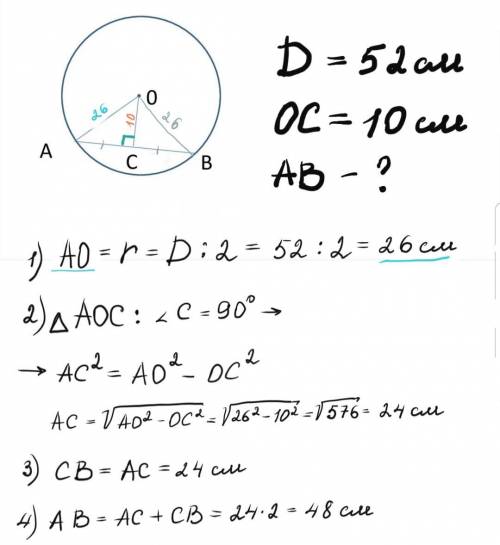 D = 52 см
OC = 10 см
AB - ?
26
10
O
26
A
C
B
1) AO = r = D : 2 = 52 : 2 = 26 см
2) △ AOC : ∠ C = 90° →
→ AC² = AO² - OC²
AC = √AO² - OC² = √26² - 10² = √576 = 24 см
3) CB = AC = 24 см
4) AB = AC + CB = 24 · 2 = 48 см